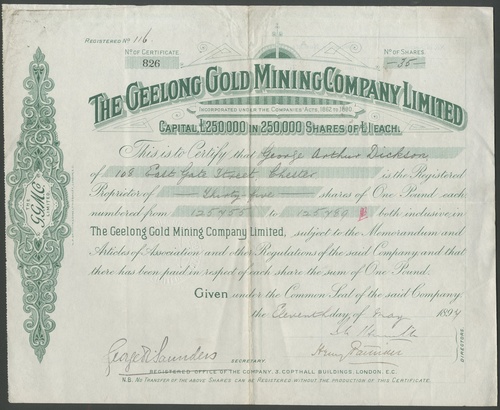 REGISTERED No 116
No OF CERTIFICATE.
826
No OF SHARES.
-35-
THE GEELONG GOLD MINING COMPANY LIMITED
INCORPORATED UNDER THE COMPANIES' ACTS, 1862 TO 1890.
CAPITAL £250,000 IN 250,000 SHARES OF £1 EACH.
This is to Certify that George Arthur Dickson
of 102 East Gate Street, Chester is the Registered
Proprietor of Thirty five shares of One Pound each
numbered from 125455 to 125489 both inclusive, in
The Geelong Gold Mining Company Limited, subject to the Memorandum and
Articles of Association and other Regulations of the said Company, and that
there has been paid in respect of each share the sum of One Pound.
Given under the Common Seal of the said Company,
the Eleventh day of May 1894
George R Saunders
SECRETARY.
DIRECTORS.
REGISTERED OFFICE OF THE COMPANY, 3, COPTHALL BUILDINGS, LONDON, E.C.
N.B. NO TRANSFER OF THE ABOVE SHARES CAN BE REGISTERED WITHOUT THE PRODUCTION OF THIS CERTIFICATE.
THE
G.G.M.Co
LIMITED